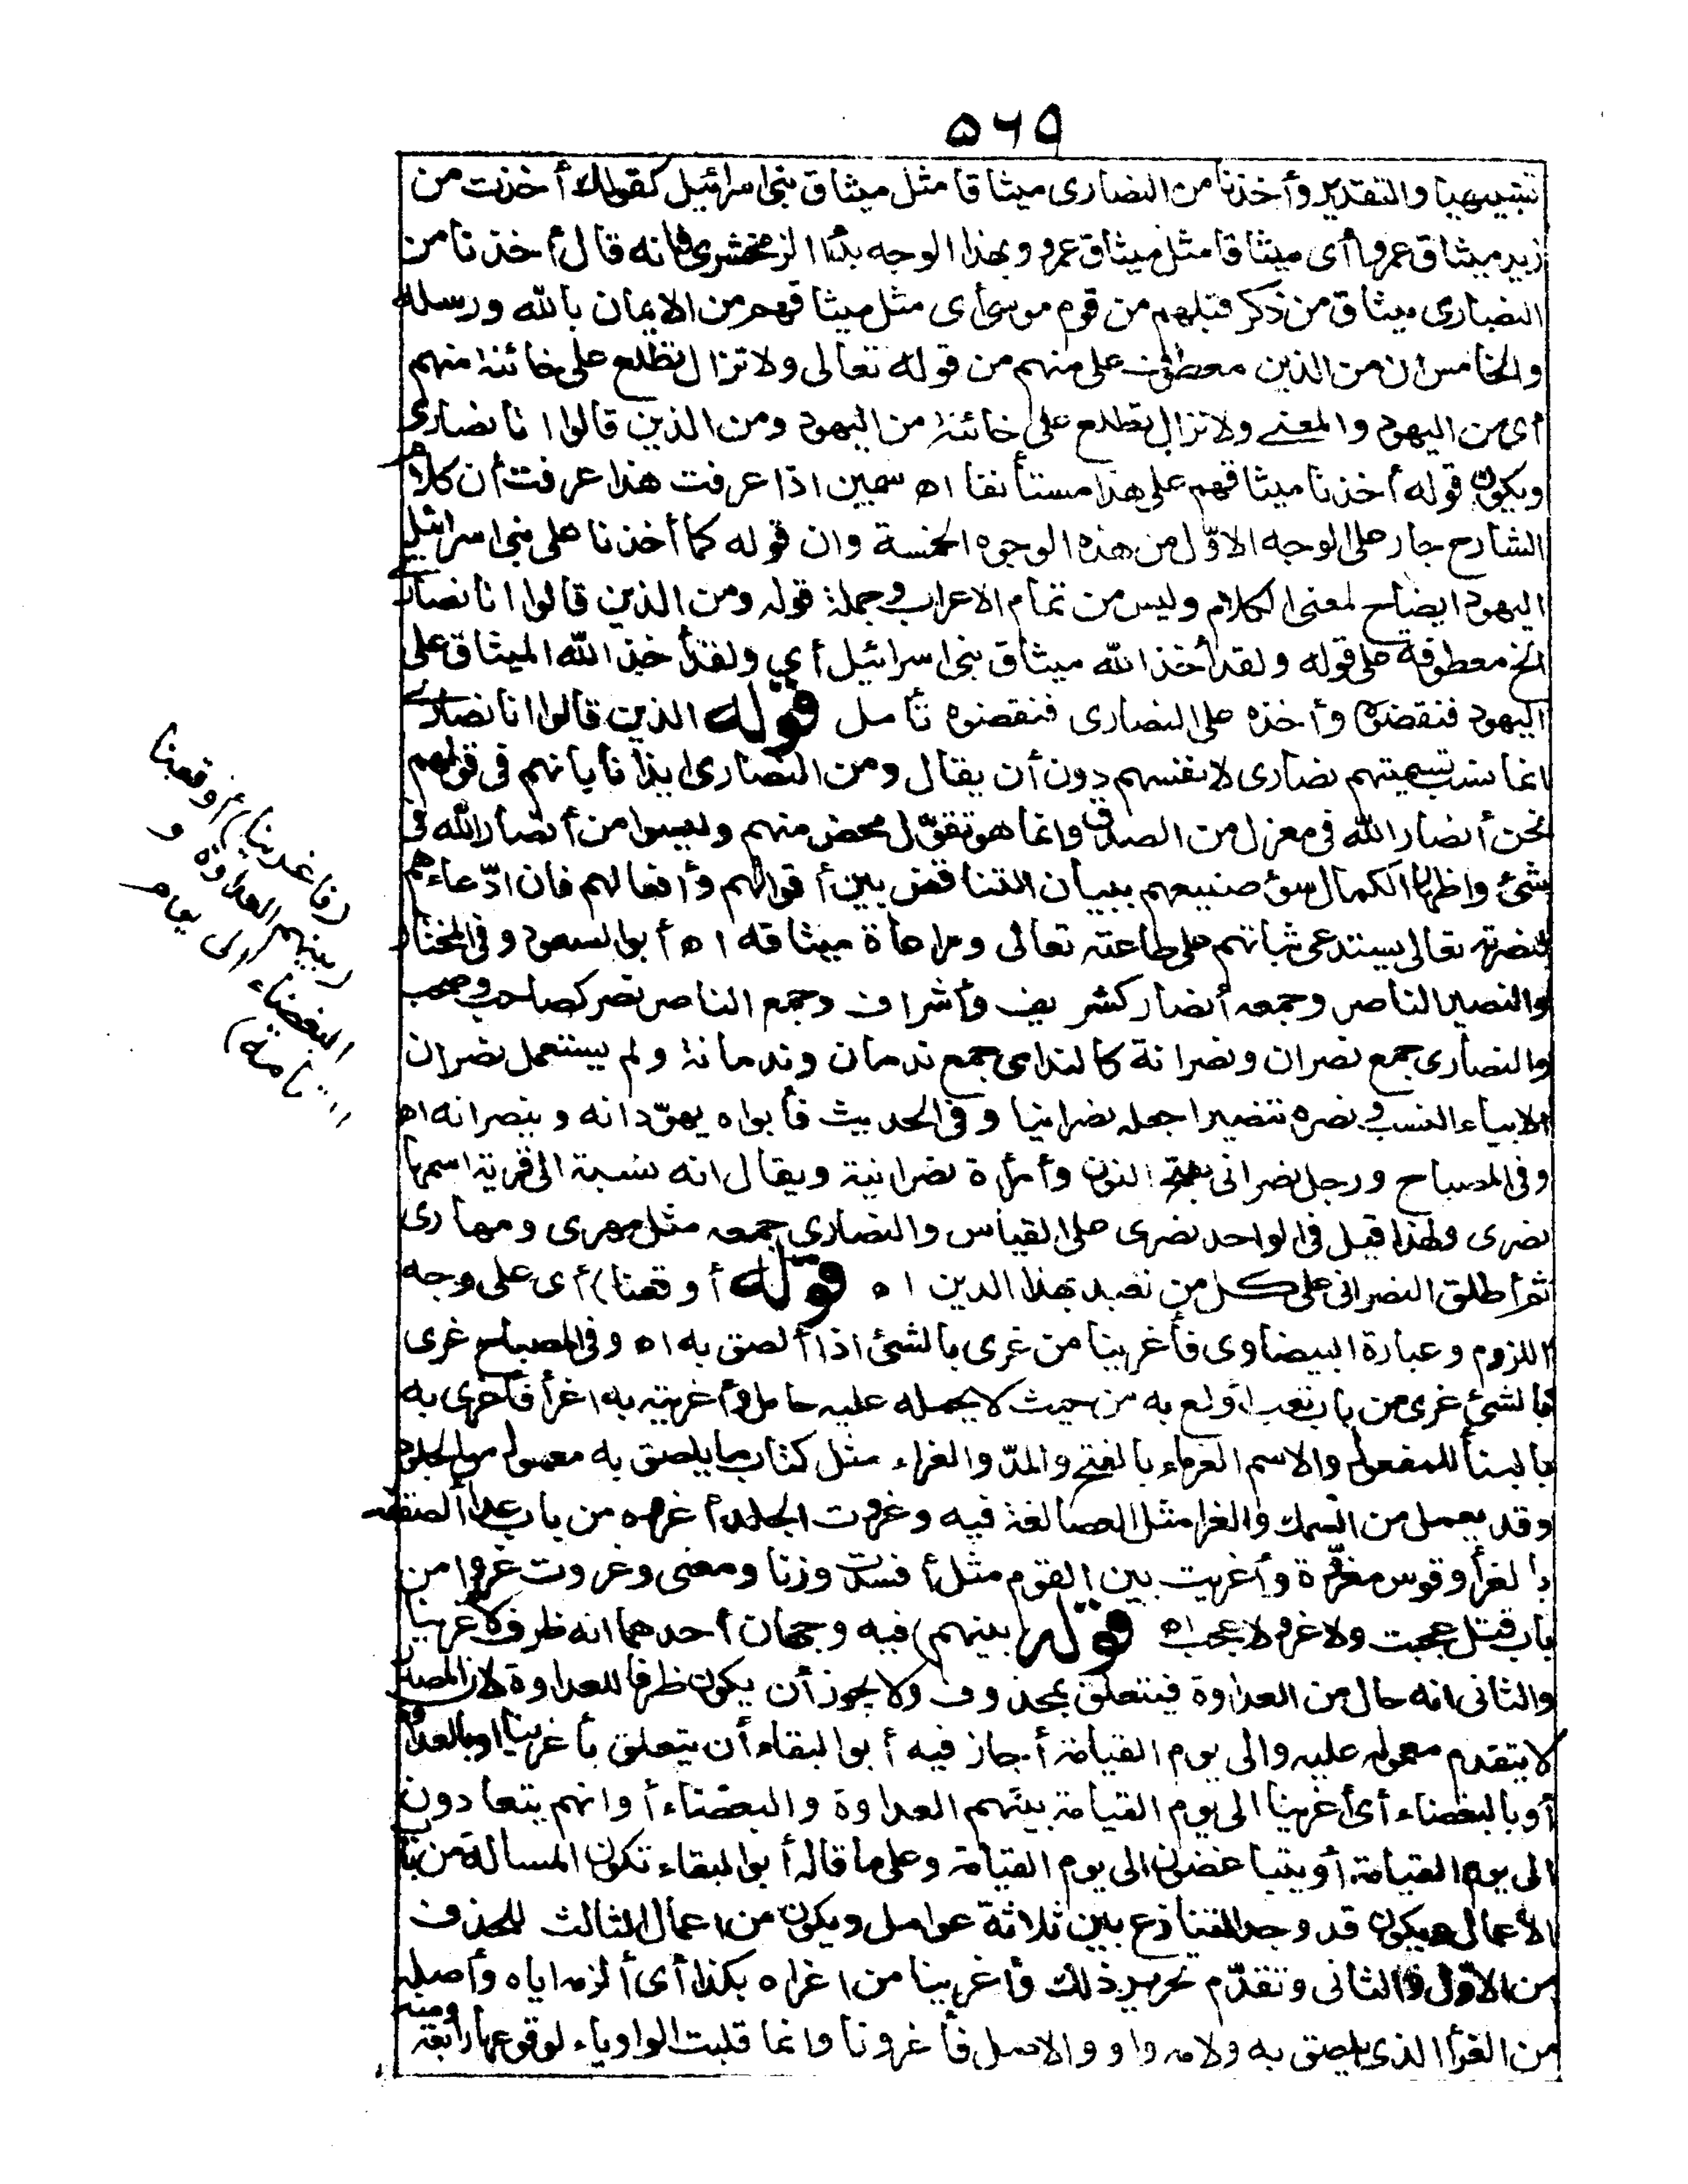 ٥٦٩
تشبيهيا والتقدير وأخذنا من النصارى ميثاقا مثل ميثاق بنى اسرائيل كقولك أخذت من
زيد ميثاق عمرو أى ميثاقا مثل ميثاق عمرو وبهذا الوجه بدأ الزمخشرى فانه قال أخذنا من
النصارى ميثاق من ذكر قبلهم من قوم موسى أى مثل ميثاقهم من الايمان بالله ورسله
والخامس ان من الذين معطوف على منهم من قوله تعالى ولا تزال تطلع على خائنة منهم
أى من اليهود والمعنى ولا تزال تطلع على خائنة من اليهود ومن الذين قالوا انا نصارى
ويكون قوله أخذنا ميثاقهم على هذا مستأنفا اه سمين اذا عرفت هذا عرفت أن كلام
الشارح جار على الوجه الاوّل من هذه الوجوه الخمسة وان قوله كما أخذنا على بنى اسرائيل
اليهود ايضاح لمعنى الكلام وليس من تمام الاعراب وجملة قوله ومن الذين قالوا انا نصارى
الخ معطوفة على قوله ولقد أخذ الله ميثاق بنى اسرائيل أي ولقد أخذ الله الميثاق على
اليهود فنقضوه وأخذه على النصارى فنقضوه تأمل قوله الذين قالوا انا نصارى
انما نسب تسميتهم نصارى لانفسهم دون أن يقال ومن النصارى ايذانا بانهم فى قولهم
نحن أنصار الله فى معزل من الصدق وانما هو تقوّل محض منهم وليسوا من أنصار الله فى
شئ واظهارا لكمال سوء صنيعهم ببيان التناقض بين أقوالهم وأفعالهم فان ادّعاءهم
لنصرته تعالى يستدعى ثباتهم على طاعته تعالى ومراعاة ميثاقه اه أبو السعود وفى المختار
والنصير الناصر وجمعه أنصار كشريف وأشراف وجمع الناصر نصر كصاحب وصحب
والنصارى جمع نصران ونصرانة كالندامى جمع ندمان وندمانة ولم يستعمل نصران
الا بياء النسب ونصره تنصيرا جعله نصرانيا وفى الحديث فأبواه يهوّدانه وينصرانه اه
وفى المصباح ورجل نصرانى بفتح النون وأمرأة نصرانية ويقال انه نسبة الى قرية اسمها
نصرى ولهذا قيل فى الواحد نصرى على القياس والنصارى جمعه مثل مهرى ومهارى
ثم أطلق النصرانى على كل من تعبد بهذا الدين اه قوله أوقعنا) أى على وجه
اللزوم وعبارة البيضاوى فأغرينا من غرى بالشئ اذا ألصق به اه وفى المصباح غرى
بالشئ غرى من باب تعب أولع به من حيث لا يحمله عليه حامل وأغريته به اغرأ فأغرى به
بالبنأ للمفعول والاسم الغراء بالفتح والمدّ والغراء مثل كتاب ما يلصق به معمول من الجلود
وقد يعمل من السمك والغرا مثل العصا لغة فيه وغروت الجلد أغروه من باب عدا ألصقته
بالغرأ وقوس مغرّوة وأغريت بين القوم مثل أفسدت وزنا ومعنى وغروت غروا من
باب قتل عجبت ولا غرو لا عجب اه قوله (بينهم) فيه وجهان أحدهما انه ظرف لأغرينا
والثانى انه حال من العداوة فيتعلق بمحذوف ولا يجوز أن يكون ظرفا للعداوة لان المصدر
لا يتقدم معموله عليه والى يوم القيامة أجاز فيه أبو البقاء أن يتعلق بأغرينا أو بالعداوة
أو بالبغضاء أى أغرينا الى يوم القيامة بينهم العداوة والبغضاء أو انهم يتعادون
الى يوم القيامة أو يتباغضون الى يوم القيامة وعلى ما قاله أبو البقاء تكون المسالة من باب
الأعمال ويكون قد وجد التنازع بين ثلاثة عوامل ويكون من اعمال الثالث للحذف
من الاوّل والثانى وتقدّم تحرير ذلك وأغرينا من اغراه بكذا أى ألزمه اياه وأصله
من الغرأ الذى يلصق به ولامه واو والاصل فأغرونا وانما قلبت الواو ياء لوقوعها رابعة ومنه
(فاغرينا) أوقعنا
(بينهم العداوة و
البغضاء الى يوم
القيامة)